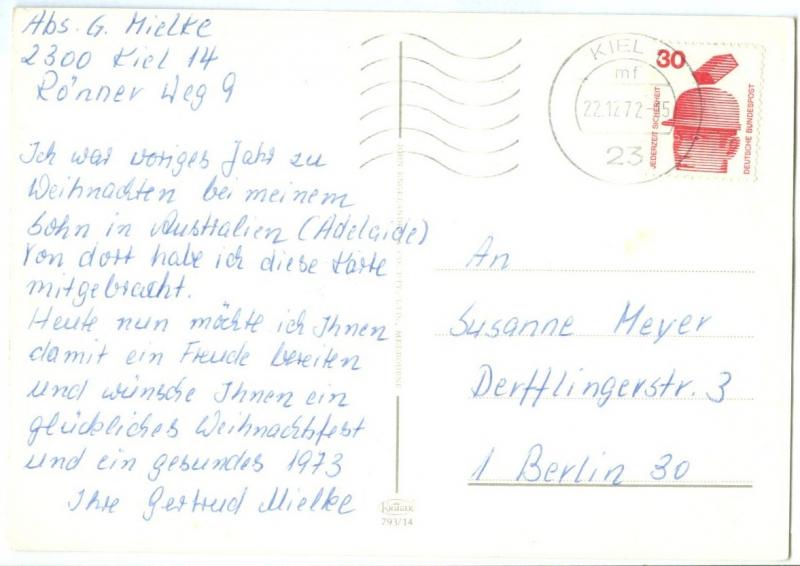 Abs. G. Mielke
2300 Kiel 14
Rönner Weg 9
Ich war voriges Jahr zu
Weihnachten bei meinem
Sohn in Australien (Adelaide)
Von dort habe ich diese Karte
mitgebracht.
Heute nun möchte ich Ihnen
damit ein Freude bereiten
und wünsche Ihnen ein
glückliches Weihnachtsfest
und ein gesundes 1973
Ihre Gertrud Mielke
KIEL
mf
22.12.72
23
30
JEDERZEIT SICHERHEIT
DEUTSCHE BUNDESPOST
An
Susanne Meyer
Derfflingerstr. 3
1 Berlin 30
793/14